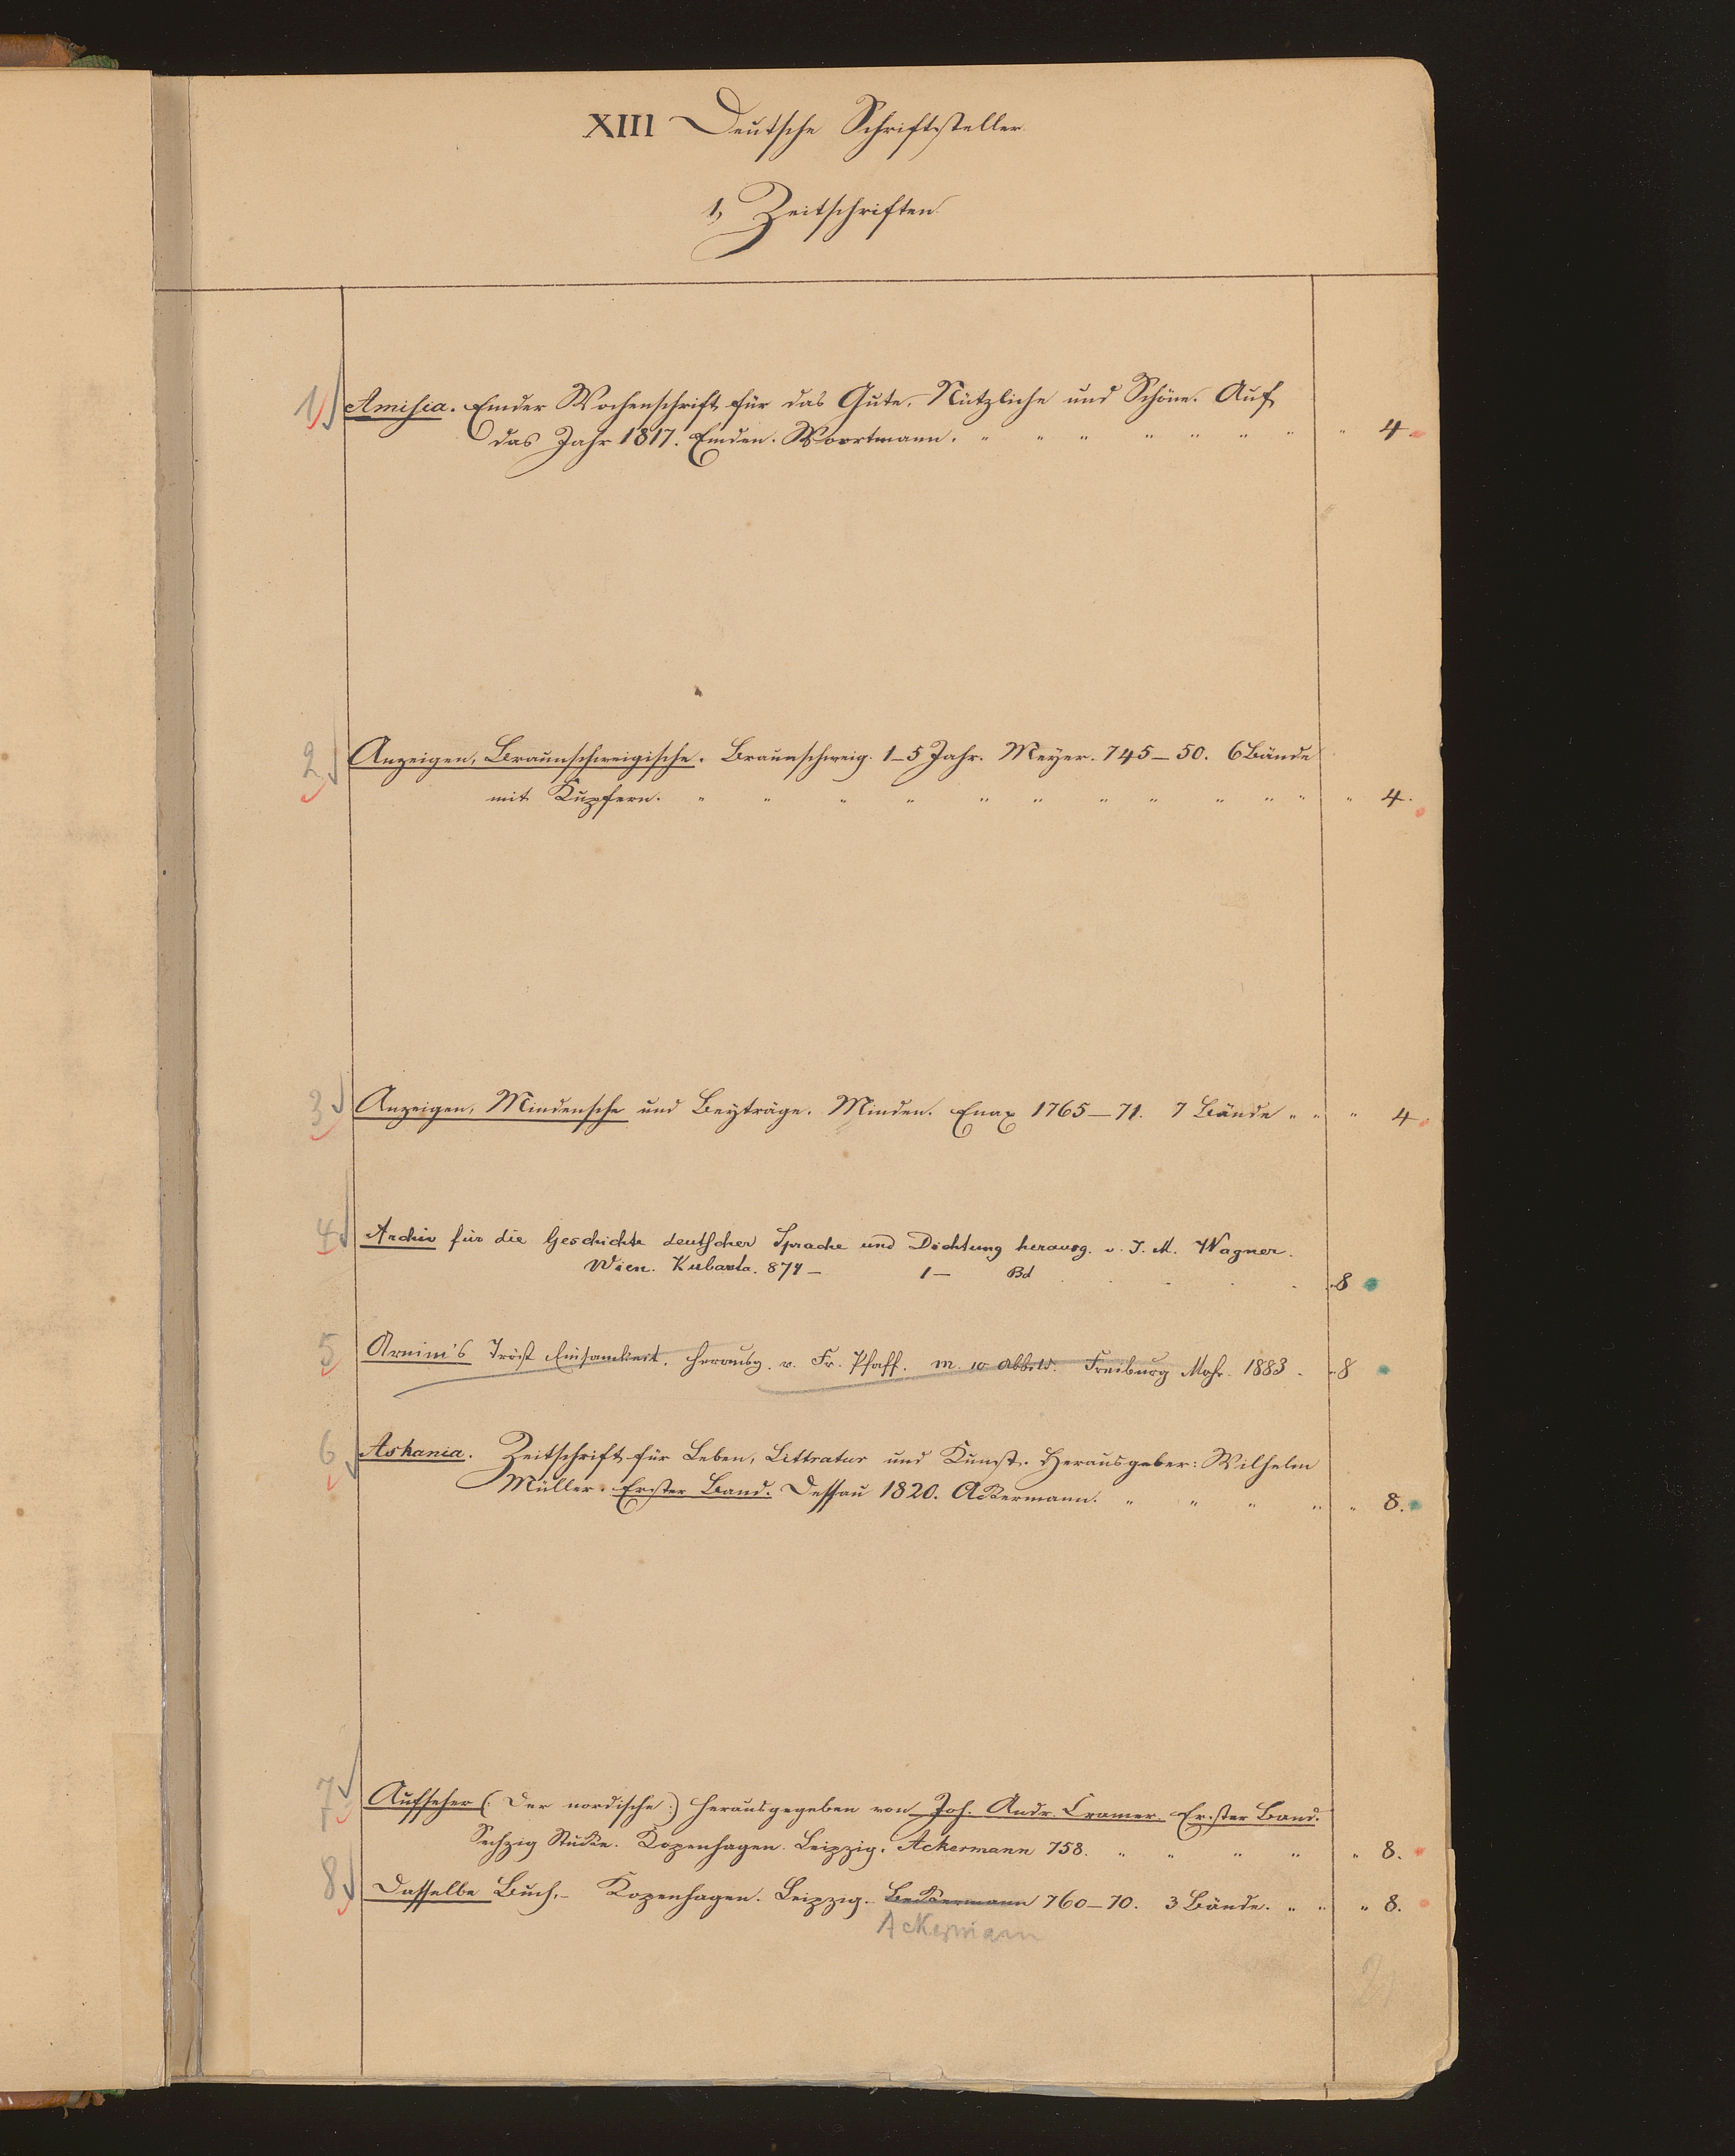 XIII Deutsche Schriftsteller.
1, Zeitschriften.
1 Amisia. Emder Wochenschrift für das Gute, Nützliche und Schöne. Auf
das Jahr 1817. Emden. Woortmann. " " " " " " " " 4.
2 Anzeigen, Braunschweigische. Braunschweig. 1–5 Jahr. Meyer. 745–50. 6 Bände
mit Kupfern. " " " " " " " " " " " " 4.
3 Anzeigen, Mindensche und Beyträge. Minden. Enax 1765–71. 7 Bände " " " 4.
4 Archiv für die Geschichte deutscher Sprache und Dichtung herausg. v. J. M. Wagner.
Wien. Kubasta. 874 – 1 – Bd . . . . 8
5 Arnim's Tröst Einsamkeit. herausg. v. Fr. Pfaff. m. 10 Abbild. Freiburg Mohr. 1883. 8
6 Askania. Zeitschrift für Leben, Litteratur und Kunst. Herausgeber: Wilhelm
Müller. Erster Band. Dessau 1820. Ackermann. " " " " " 8.
7 Aufseher (: Der nordische :) herausgegeben von Joh. Andr. Cramer. Erster Band.
Sechzig Stücke. Kopenhagen. Leipzig. Ackermann 758. " " " " " 8.
8 Dasselbe Buch. – Kopenhagen. Leipzig. Beckermann 760–70. 3 Bände. " " " 8.
Ackermann